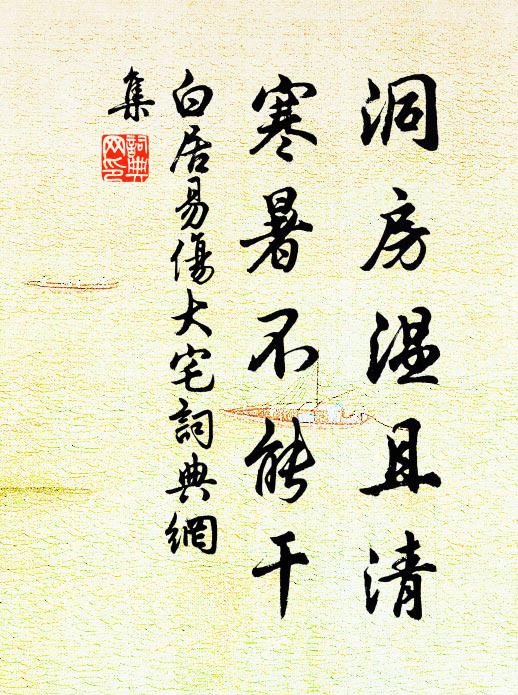 洞房溫且清
寒暑不能干
白居易傷大宅詞典網
集
詞典
网印